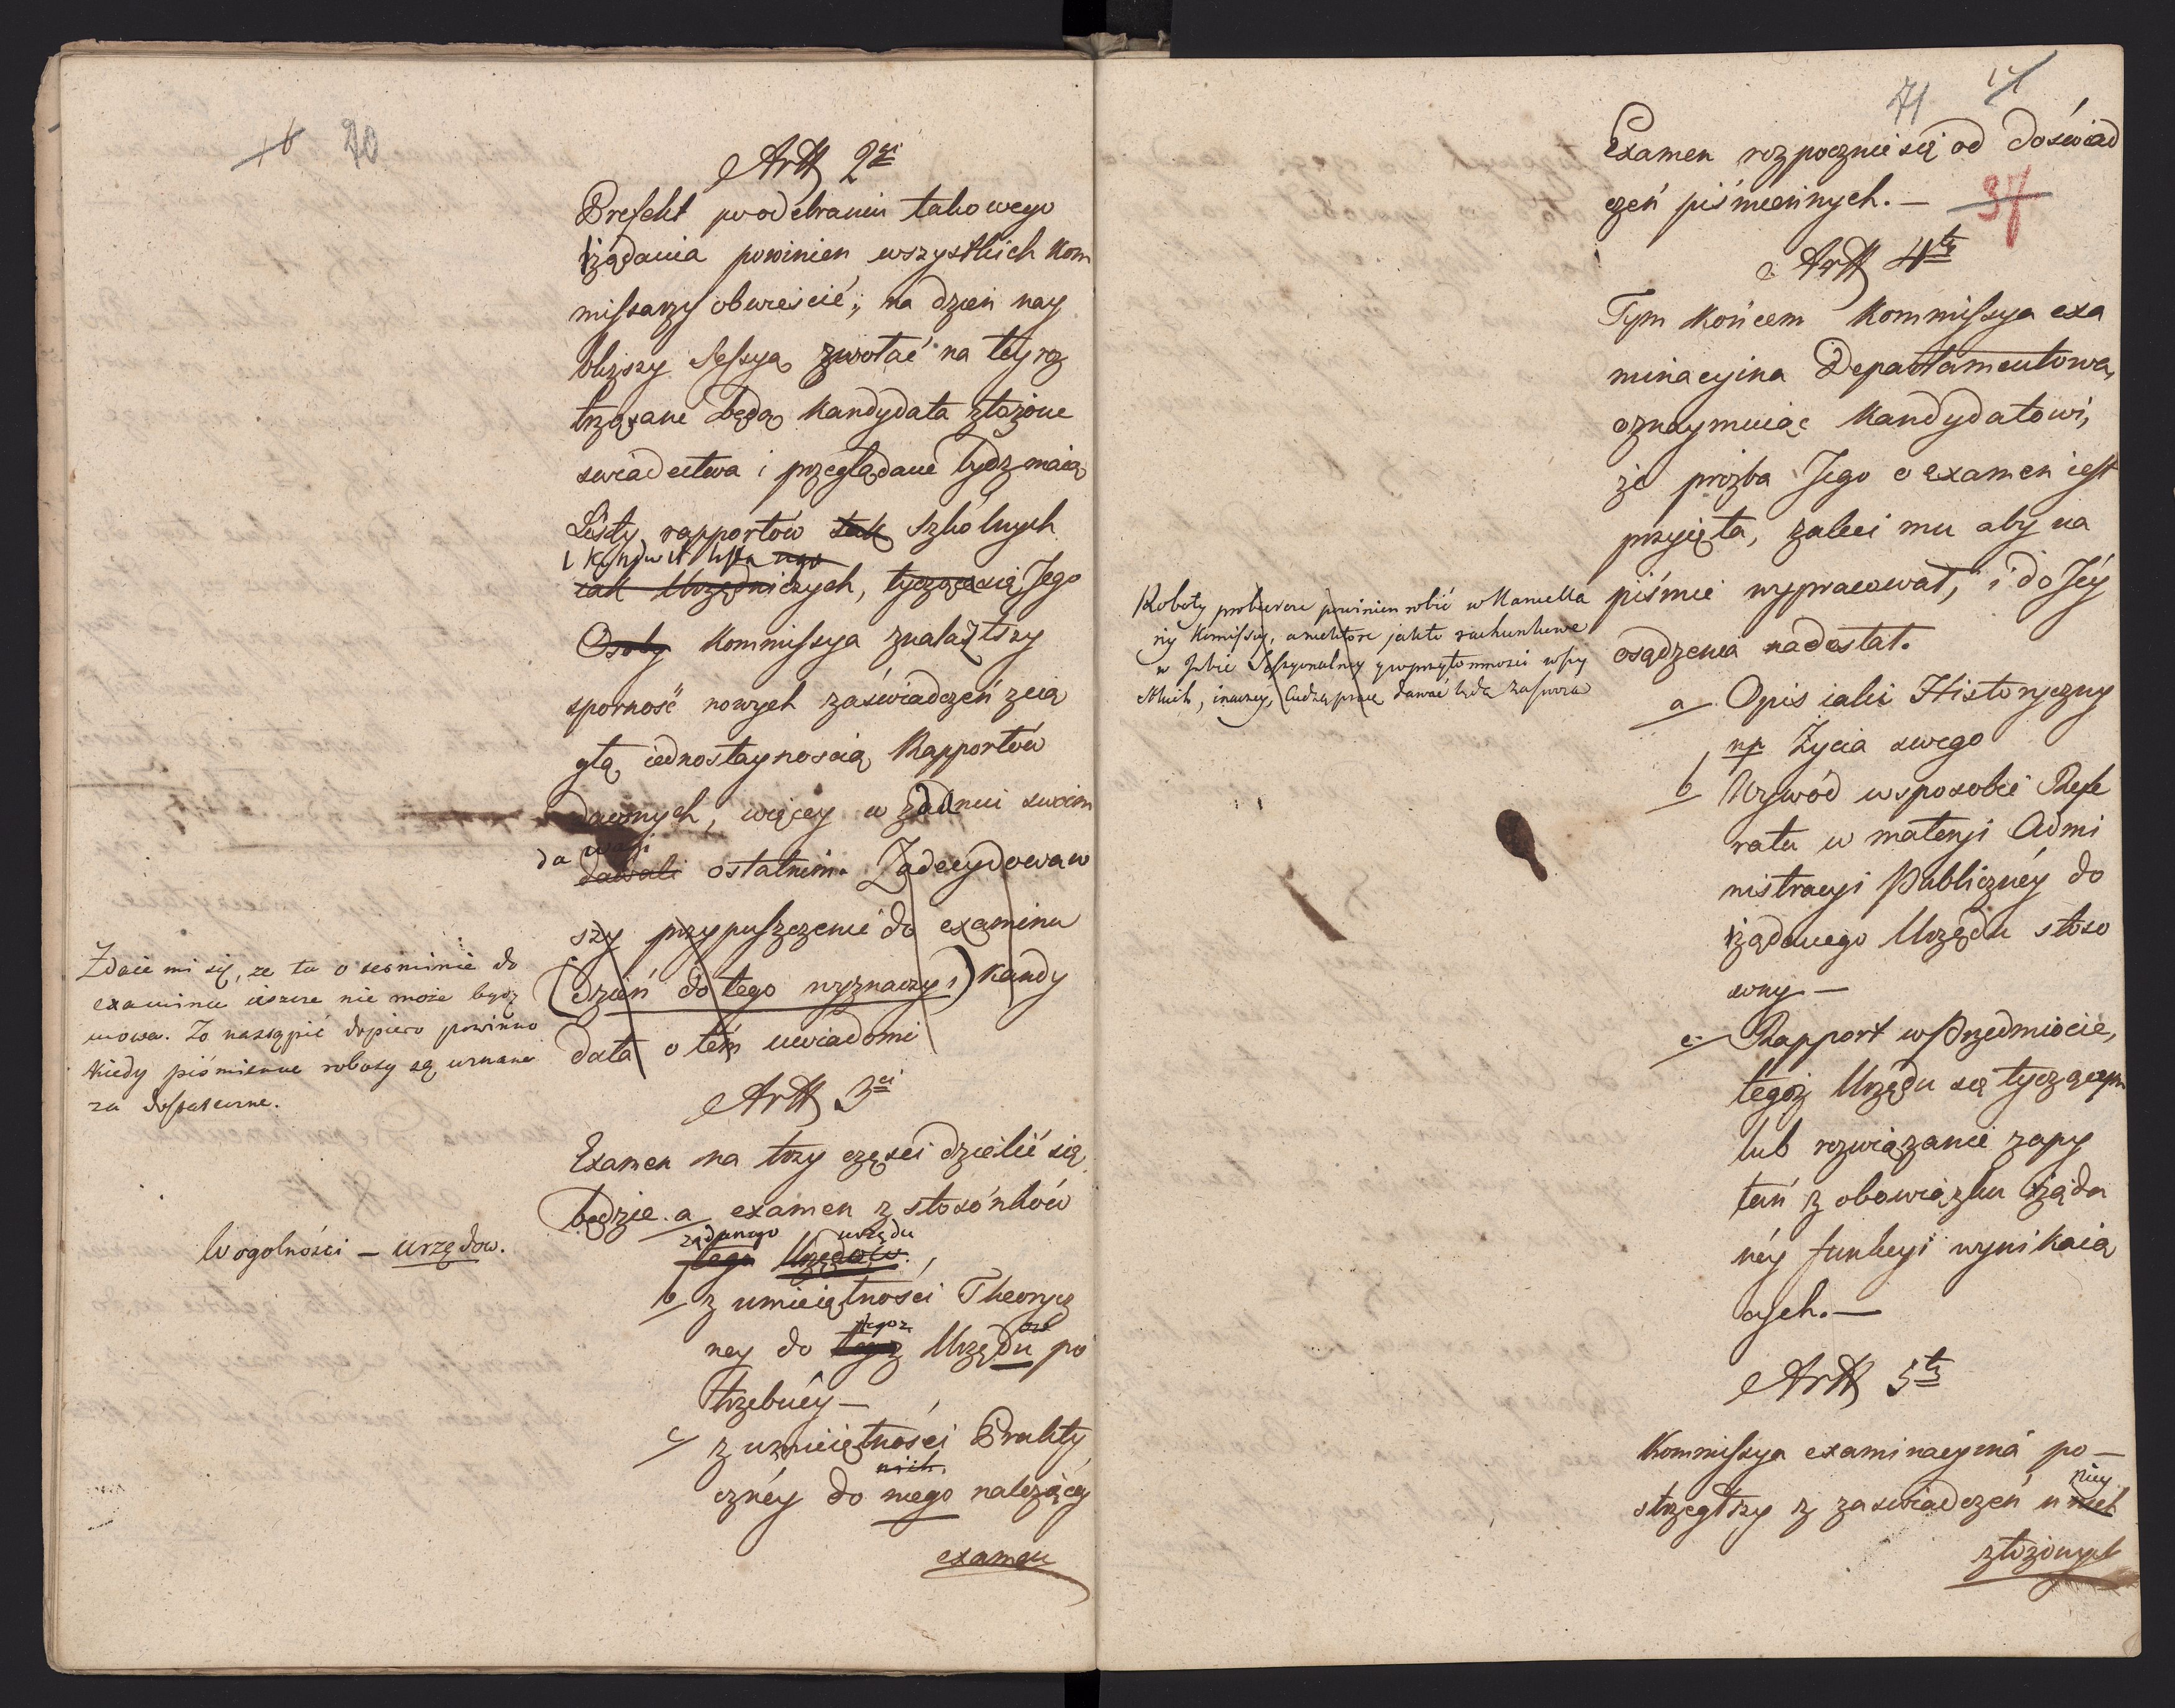 20
Artt 2gi
Prefekt po odebraniu takowego
żądania powinien wszystkich Kom
missarzy obwieścić; na dzień nay
bliższy Sessyą zwołać na tey roz
trząsane będą Kandydata złożone
swiadectwa i przeglądane bydź maią
Listy rapportów tak Szkólnych
i Konduit lista
iak Urzędniczych, tyczące się Jego
Osoby Kommissya znalazłszy
sporność nowych zaświadczeń z cią
głą iednostaynoscią Rapportów
dawnych, więcey w zdaniu swoim
da wagi
dawali ostatnim. Zadecydowaw
szy przypuszczenie do examinu
(dzień do tego wyznaczy i) Kandy
data o tém uwiadomi
Zdaie mi się, ze tu o terminie do
examinu ieszcze nie może bydź
mowa. To nastąpić dopiero powinno
kiedy piśmienne roboty są uznane
za dostateczne.
Artt 3ci
Examen na trzy częsci dzielić się
będzie. a examen z stosónków
żądanego urzędu
tego Urzędów.
W ogolności – urzędow.
b z umieiętności Theorycz
ney do tegoż Urzędu po
trzebnéy —
c z umieiętności Prakty
cznéy do niego należącéy
nich
examen
71
Examen rozpocznie się od doświad
czeń piśmiennych. —
37
Artt 4ty
Tym końcem Kommissya exa
minacyina Departamentowa,
oznaymuiąc Kandydatowi,
że prożba Jego o examen iest
przyięta, zaleci mu aby na
piśmie wypracował, i do Jéy
osądzenia nadesłał.
Roboty probierze powinien robić w Kancella
ryi Komissyi, a niektóre jakto rachunkowe
w Izbie Sessyonalney y w przytomności wszy
stkich, inaczey, Cudzą pracę dawać będą za swoią
a Opis iaki Historyczny
np Życia swego
b Wywód w sposobie Refe
ratu w materyi Admi
nistracyi Publicznéy do
żądanego Urzędu stoso
wny —
c. Rapport w Przedmiocie,
tegoż Urzędu się tyczącym
lub rozwiązanie zapy
tań z obowiązku żąda
néy funkcyi wynikaią
cych. —
Artt 5ty
Kommissya examinacyiná po —
strzegłszy z zaswiadczeń u niey
złożonych